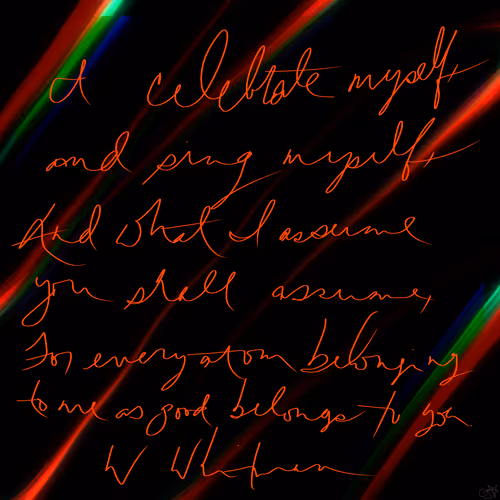 I celebrate myself,
and sing myself,
And what I assume
you shall assume,
For every atom belonging
to me as good belongs to you.
W Whitman